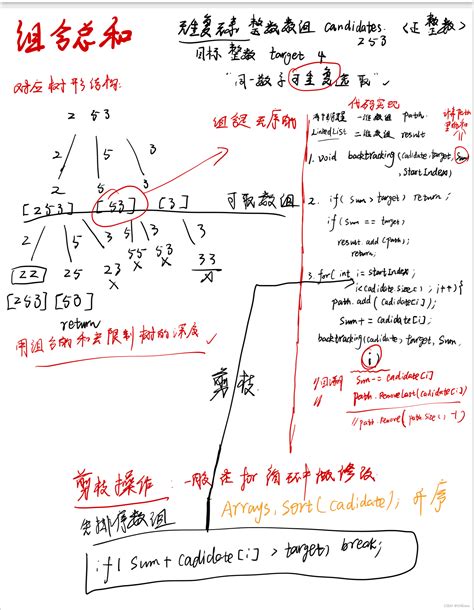 组合总和
无重复元素 整数数组 candidates. (正整数)
2 5 3
目标整数 target 4
"同一数字可重复选取"
对应树形结构:
组合是无序的
代码实现
2 5 3
2 5 3
[2 5 3] [5 3] [3]
可取数组
2 5 3 5 3 3
22 25 23 55 53 33
x x x x
[2 5 3] [5 3]
return
用组合的和去限制树的深度
一维数组 path.
LinkedList 二维数组 result
1. void backtracking(cadidate, target, sum
, startIndex)
2. if( sum > target) return;
if( sum == target)
result.add(path);
return;
3. for( int i = startIndex;
i<cadidate.size(); i++){
path.add( cadidate[i]);
sum += cadidate[i];
backtracking(cadidate, target, sum,
i
//回溯 sum -= cadidate[i]
// path.removeLast(cadidate[i])
//path.remove(path.size()-1)
剪枝
剪枝操作: 一般是for循环中做修改
先排序数组
Arrays.sort(cadidate); 升序
if( sum + cadidate[i] > target) break;